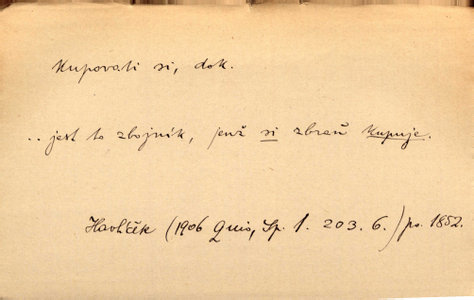 Kupovati si, dok.
.. jest to zbojník, jenž si zbraň kupuje.
Havlíček (1906 Quis, Sp. 1. 203. 6.) ps. 1852.